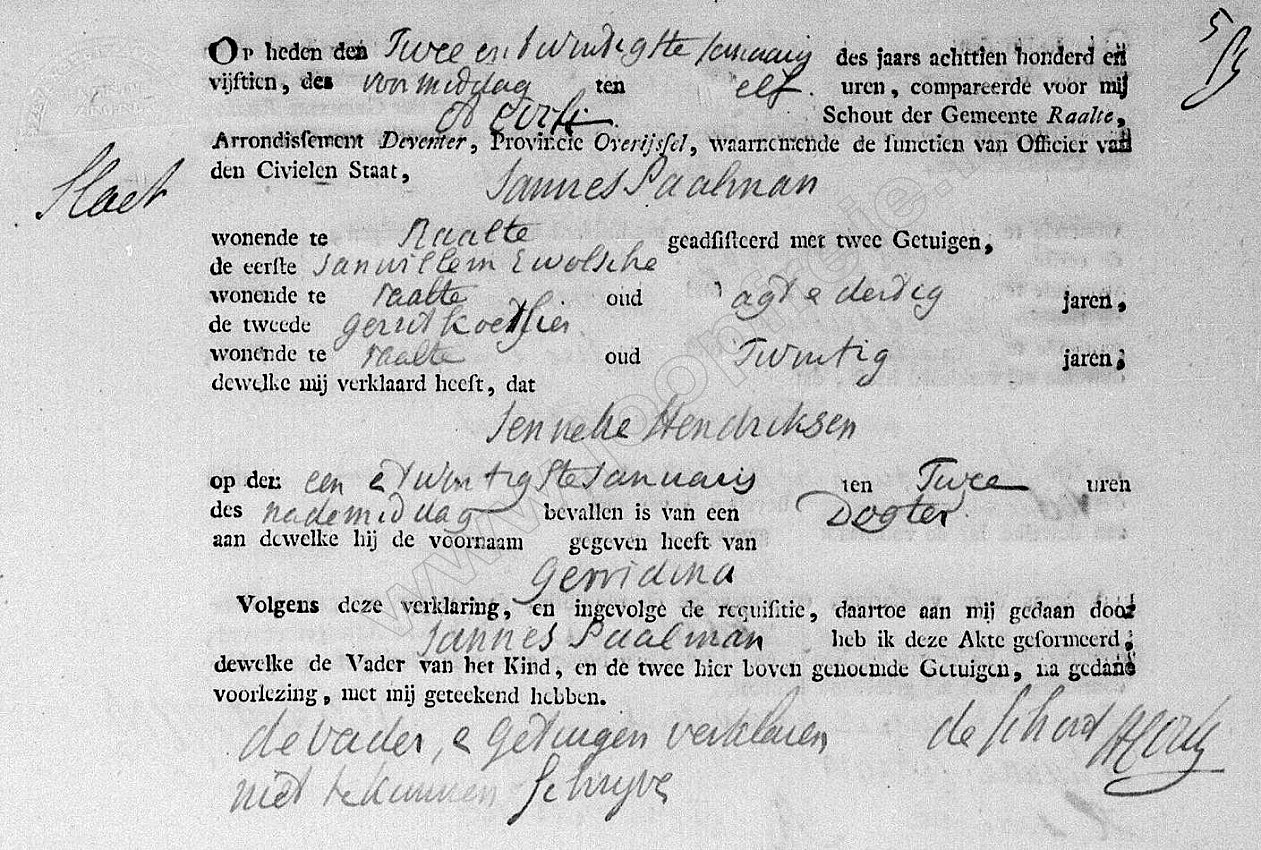 Op heden den Twee en twintigste Januarij des jaars achttien honderd en
vijftien, des voormiddag ten elf. uren, compareerde voor mij
Schout der Gemeente Raalte,
Arrondissement Deventer, Provincie Overijssel, waarnemende de functien van Officier van
den Civielen Staat, Jannes Paalman
wonende te Raalte geadsisteerd met twee Getuigen,
de eerste Janwillem Ewolsche
wonende te raalte oud agt e dertig jaren,
de tweede gerrit
wonende te raalte oud Twintig jaren,
dewelke mij verklaard heeft, dat
Jenneke Hendriksen
op den een e twintigste Januarij ten Twee uren
des nademiddag bevallen is van een Dogter
aan dewelke hij de voornaam gegeven heeft van
Gerridina
Volgens deze verklaring, en ingevolge de requisitie, daartoe aan mij gedaan door
Jannes Paalman heb ik deze Akte geformeerd,
dewelke de Vader van het Kind, en de twee hier boven genoemde Getuigen, na gedane
voorlezing, met mij geteekend hebben.
de vader, e getuigen verklaren de Schout
niet te kunnen Schryve